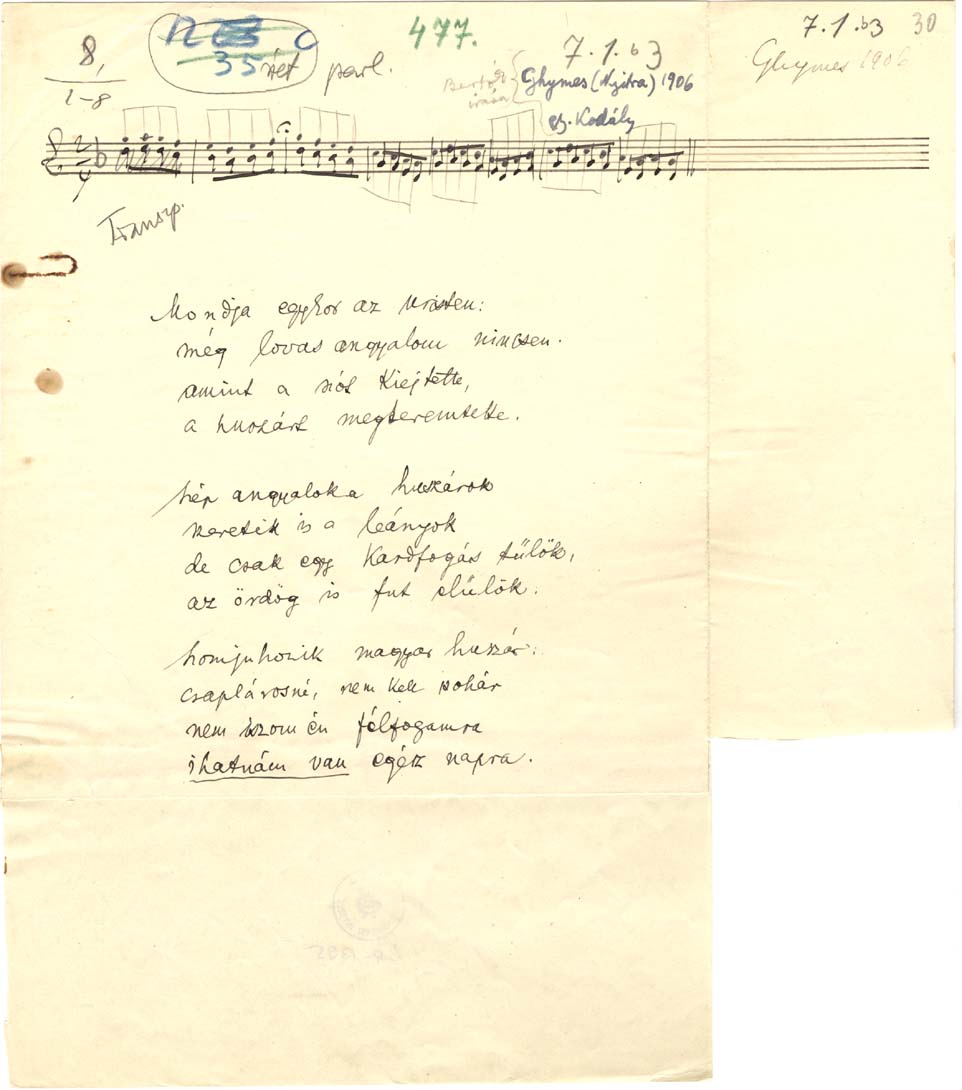 8,
1-8
35
parl.
477.
7.1.b3
Ghymes (Nyitra) 1906
Bartók
írása
gy. Kodály
7.1.b3 30
Ghymes 1906
Transp.
Mondja egykor az Uristen:
még lovas angyalom nincsen.
amint a szót kiejtette,
a huszárt megteremtette.
szép angyalok a huszárok
szeretik is a leányok
de csak egy kardfogás tűlök,
az ördög is fut elűlök.
homjuhozik magyar huszár:
csaplárosné, nem kell pohár
nem iszom én félfogamra
ihatnám van egész napra.